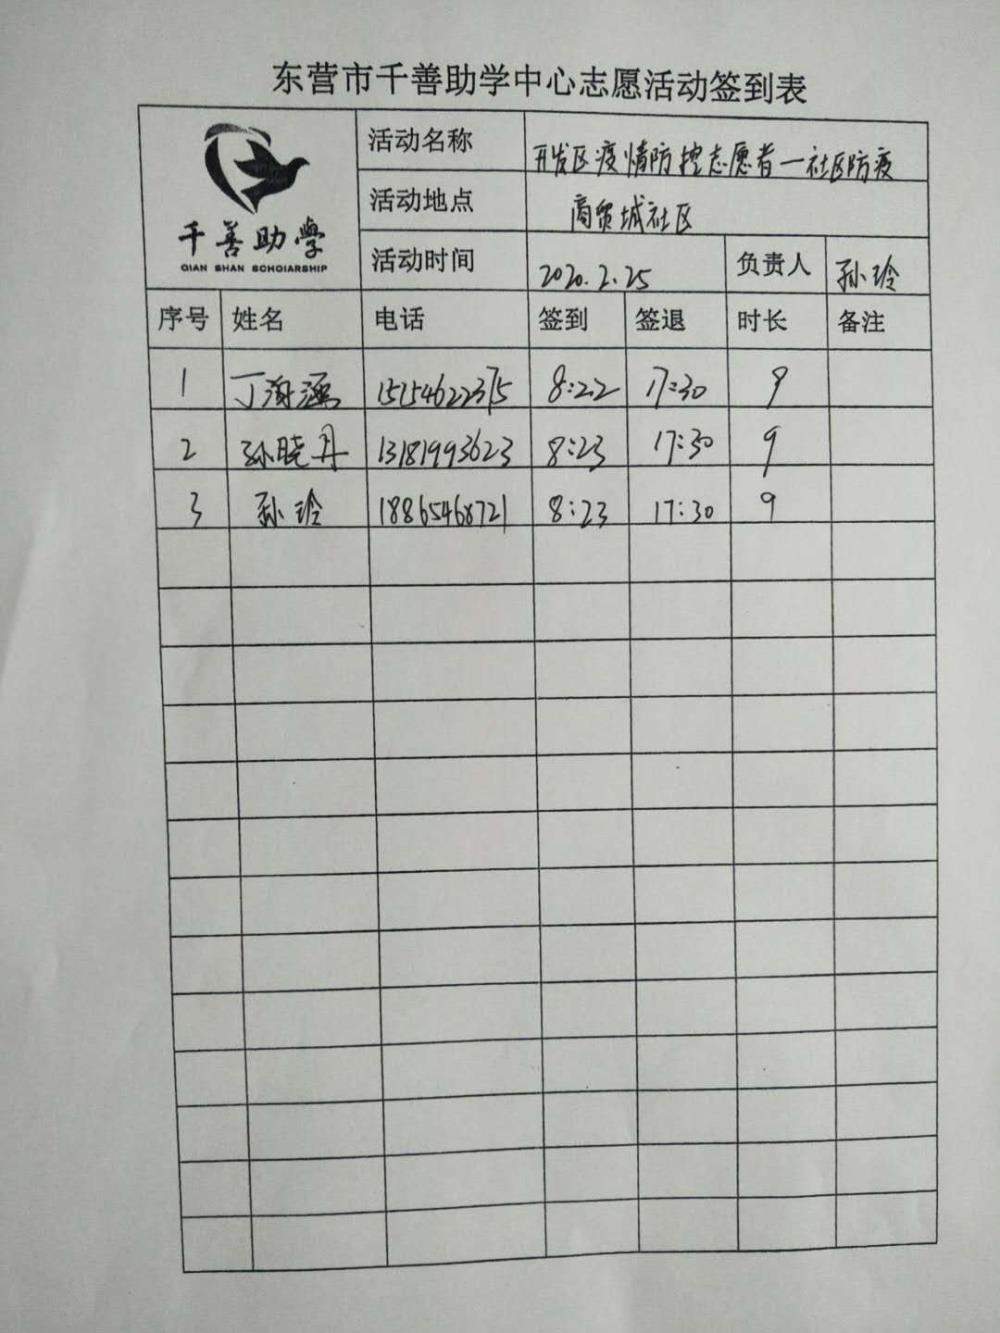 东营市千善助学中心志愿活动签到表
千善助学
QIAN SHAN SCHOIARSHIP
活动名称 开发区疫情防控志愿者—社区防疫
活动地点 商贸城社区
活动时间 2020.2.25 负责人 孙玲
序号 姓名 电话 签到 签退 时长 备注
1 丁海涵 15154622375 8:22 17:30 9
2 孙晓丹 13181993623 8:23 17:30 9
3 孙玲 18865468721 8:23 17:30 9